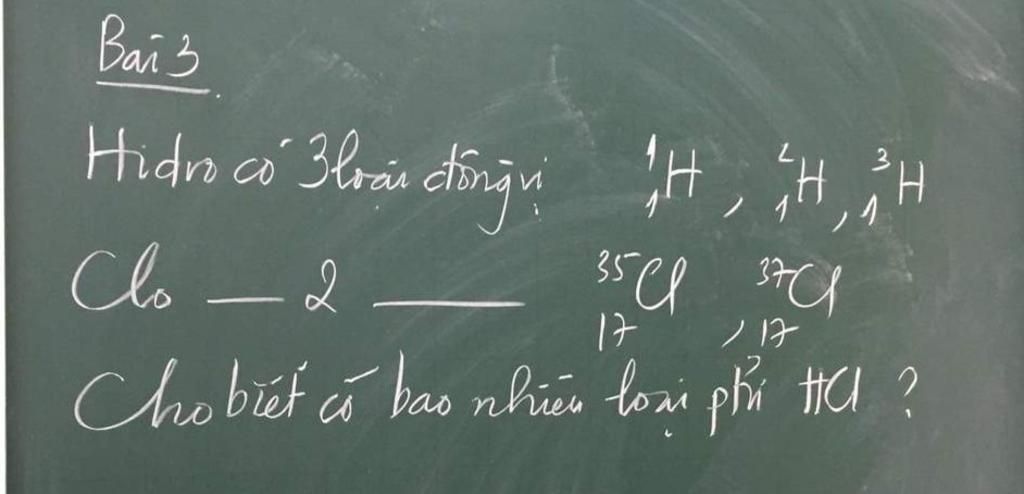 Bài 3
Hidro có 3 loại đồng vị ¹₁H, ²₁H, ³₁H
Clo — 2 —— ³⁵₁₇Cl, ³⁷₁₇Cl
Cho biết có bao nhiêu loại ptử HCl ?